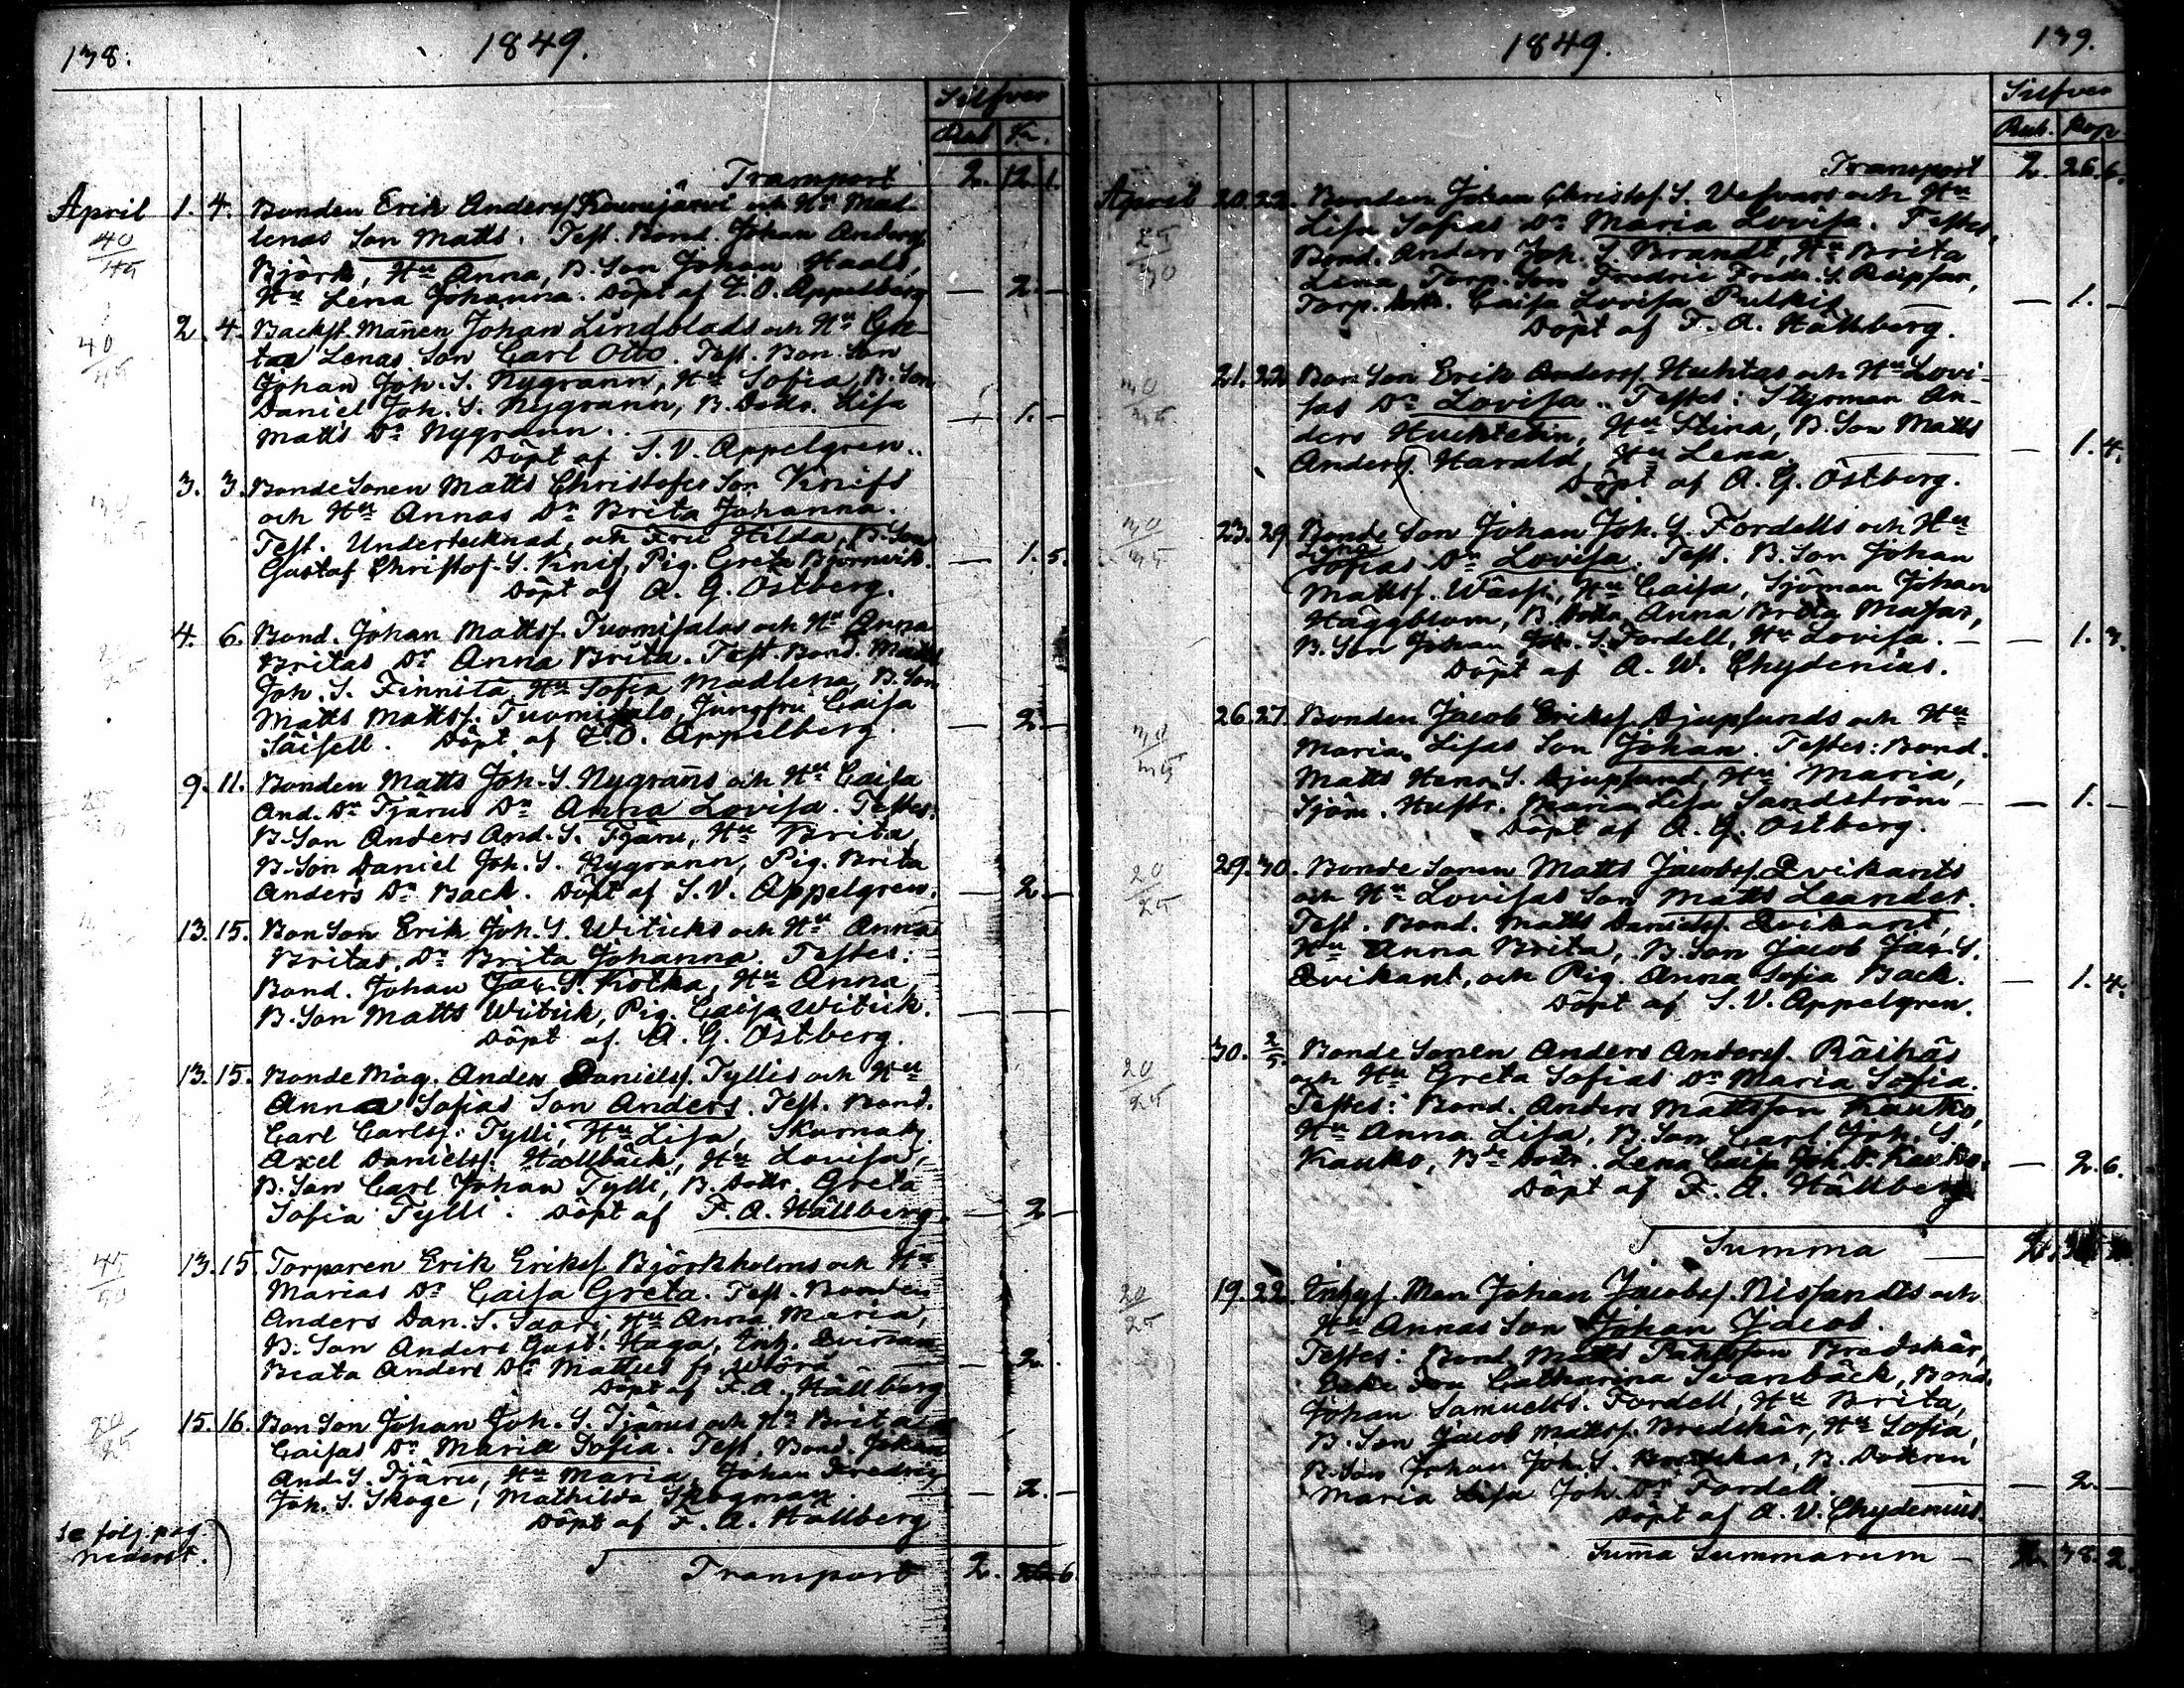 138.
1849.
Silfver
Rub. K.
Transport 2. 12. 1.
April 1. 4. Bonden Erik Anders. Kourujärvi och Hu Mad-
40/45 lenas Son Matts. Test. Bond. Johan Anderss.
Björk, Hu Anna, B. Son Johan Haals,
Hu Lena Johanna. Döpt af E. O. Appelberg — 2. —
2. 4. Backst. Mannen Johan Lindblads och Hu Gre-
40/45 tas Lenas Son Carl Otto. Test. Bon. Son
Johan Joh. S. Nygrann, Hu Sofia, B. Son
Daniel Joh. S. Nygrann, B. Dottr. Lisa
Matts Dr Nygrann. — 1. —
Döpt af S. V. Appelgren.
3. 3. BondeSonen Matts Christofers Son Knifs
och Hu Annas Dr Brita Johanna.
Test. Undertecknad, och Fru Hilda, B. Son
Gustaf Christof. S. Knif, Pig. Greta Björnvik. — 1. 5.
Döpt af A. G. Östberg.
4. 6. Bond. Johan Mattss. Tuomisalas och Hu Anna
Britas Dr Anna Brita. Test. Bond. Matts
Joh. S. Finnilä, Hu Sofia Madlena, B. Son
Matts Mattss. Tuomisalo, Jungfru Caisa
Döpt af E. O. Appelberg. — 2. —
9. 11. Bonden Matts Joh. S. Nygranns och Hu Caisa
And. Dr Tjärus Dr Anna Lovisa. Testes:
B. Son Anders And. S. Tjäru, Hu Brita,
B. Son Daniel Joh. S. Nygrann, Pig. Brita
Anders Dr Back. Döpt af S. V. Appelgren. — 2. —
13. 15. Bon Son Erik Joh. S. Witicks och Hu Anna
Britas Dr Brita Johanna. Testes:
Bond. Johan Jac. S. Kotka, Hu Anna,
B. Son Matts Witick, Pig. Caisa Witick. — — —
Döpt af A. G. Östberg.
13. 15. Bonde Måg. Anders Danielss. Tyllis och Hu
Annas Sofias Son Anders. Test. Bond.
Carl Carlss. Tylli, Hu Lisa, Skarnak.
Axel Danielss. Hallbäck, Hu Lovisa,
B. Son Carl Johan Tylli, B. Dottr. Greta
Sofia Tylli. Döpt af F. A. Hällberg. — 2 —
45/50 13. 15. Torparen Erik Erikss. Björkholms och Hu
Marias Dr Caisa Greta. Test. Bonden
Anders Dan. S. Saari, Hu Anna Maria,
B. Son Anders Gust. Haga, Enk. Qvinnan
Beata Anders Dr Mattus fr. Wörå — 2.
Döpt af F. A. Hällberg
20/25 15. 16. Bon Son Johan Joh. S. Tjärus och Hu Brita
Caisas Dr Maria Sofia. Test. Bond. Johan
And. S. Tjäru, Hu Maria, Johan Fredric
Joh. S. Skoge, Mathilda Skogman. — 2. —
Döpt af F. A. Hällberg
Se följ. pag.
nederst.
Transport 2. 6.
1849.
139.
Silfver
Rub. Kop.
Transport 2. 26. 6.
April 20. 22. Bonden Johan Christof. S. Vesvars och Hu
25/30 Lisa Sofias Dr Maria Lovisa. Testes.
Bond. Anders Joh. S. Brandt, Hu Brita
Lena, Torp. Son Fredric Fredr. S. Ruipsar,
Torp. Dottr. Caisa Lovisa Pulkis — 1. —
Döpt af F. A. Hällberg.
21. 22. Bon Son Erik Anderss. Huhtas och Hu Lovi-
30/35 sas Dr Lovisa. Testes: Styrman An-
ders Huchtelin, Hu Stina, B. Son Matts
Anderss. Harald, Hu Lena. — 1. 4.
Döpt af A. G. Östberg.
23. 29. Bonde Son Johan Joh. S. Fordells och Hu
30/35 Lena
Sofias Dr Lovisa. Test. B. Son Johan
Mattss. Wässi, Hu Caisa, Sjöman Johan
Häggblom, B. Dottr. Anna Brita Masar,
B. Son Johan Joh. S. Fordell, Hu Lovisa. — 1. 3.
Döpt af A. W. Chydenius.
26. 27. Bonden Jacob Erikss. Djupsunds och Hu
Maria Lisas Son Johan. Testes: Bond.
Matts Henr. S. Djupsund, Hu Maria,
Sjöm. Hustr. Maria Lisa Sandström — 1. —
Döpt af A. G. Östberg.
20/25 29. 30. Bonde Sonen Matts Jacobss. Qvikants
och Hu Lovisas Son Matts Leander.
Test. Bond. Matts Danielss. Qvikant,
Hu Anna Brita, B. Son Jacob Jac. S.
Qvikant, och Pig. Anna Sofia Back. — 1. 4.
Döpt af S. V. Appelgren.
20/25 30. 2/5. Bonde Sonen Anders Anderss. Räihäs
och Hu Greta Sofias Dr Maria Sofia.
Testes: Bond. Anders Mattsson Kauko,
Hu Anna Lisa, B. Son Carl Joh. S.
Kauko, Bde Dottr. Lena Caisa Joh. D. Kauko. — 2. 6.
Döpt af F. A. Hällberg
Summa
20/25 19. 22. Inhys. Man Johan Jacobss. Nissandts och
Hu Annas Son Johan Jacob.
Testes: Bond. Matts Bredskär,
Enke Fru Catharina Svanbäck, Bond.
Johan Samuelss. Fordell, Hu Brita,
B. Son Jacob Mattss. Bredskär, Hu Sofia,
B. Son Johan Joh. S. Bredskär, B. Dottren
Maria Lisa Joh. Dr Fordell. — 2. —
Döpt af A. V. Chydenius.
Summa Summarum — 38. 2.